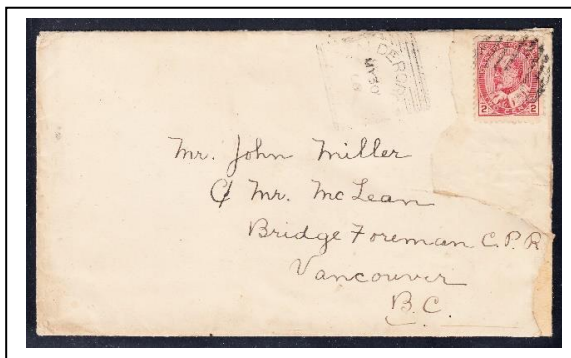 2 2
Mr. John Miller
℅ Mr. McLean
Bridge Foreman C.P.R
Vancouver
B.C.